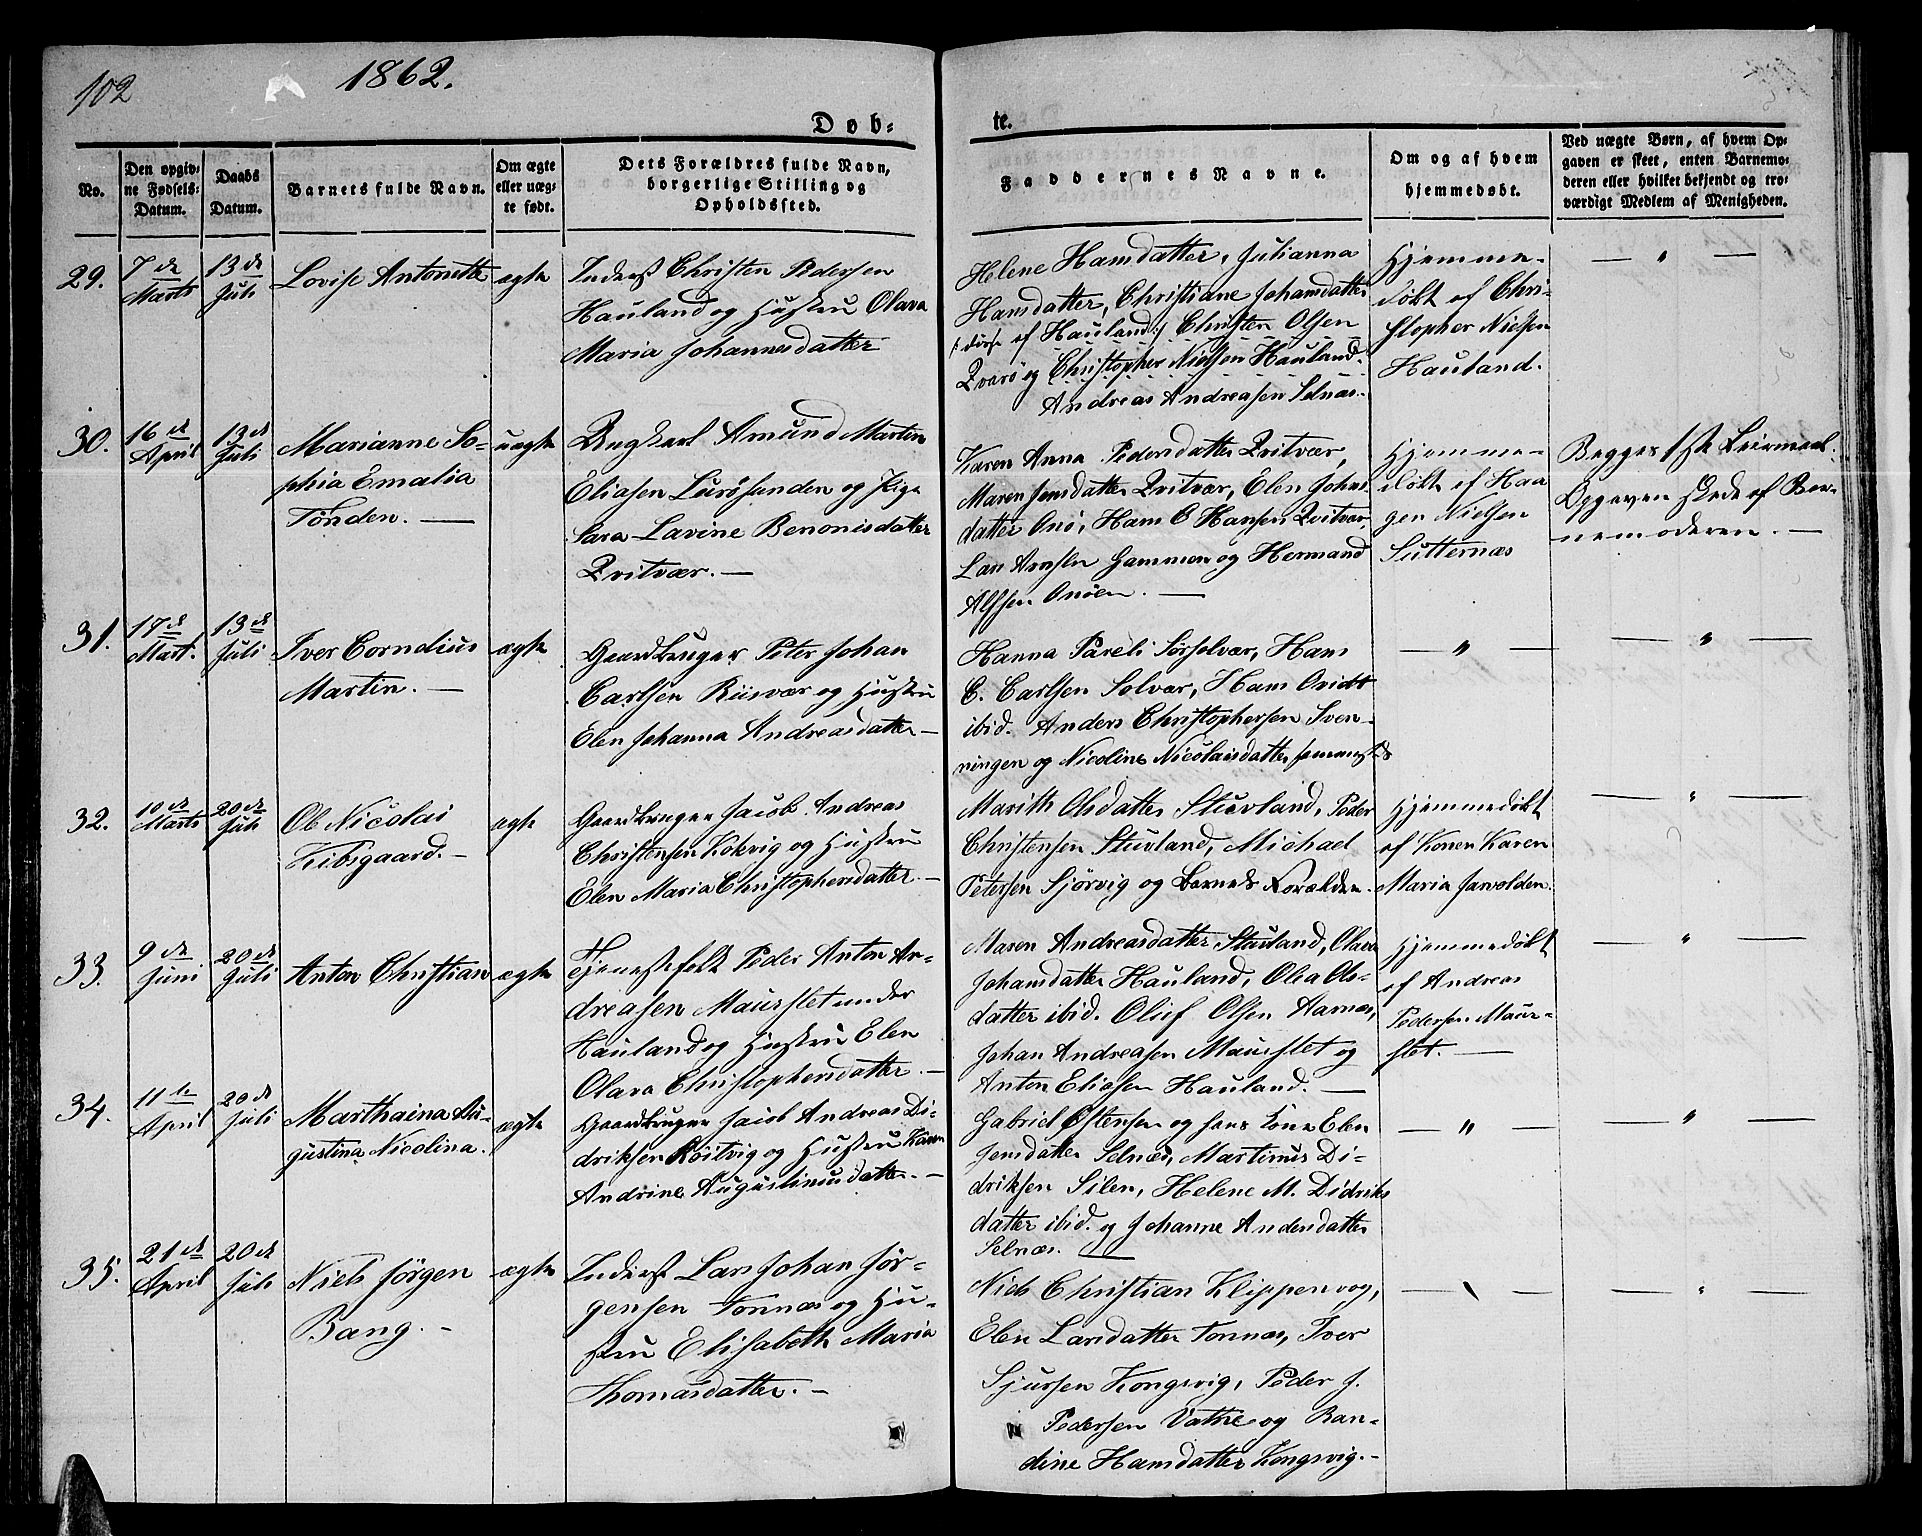 102
1862.
Døb-
te.
No.
Den opgiv-
ne Fødsels-
Datum.
Daabs
Datum.
Barnets fulde Navn.
Om ægte
eller uæg-
te født.
Dets Forældres fulde Navn,
borgerlige Stilling og
Opholdssted.
Faddernes Navne.
Om og af hvem
hjemmedøbt.
Ved uægte Børn, af hvem Op-
gaven er skeet, enten Barnemo-
deren eller hvilket bekjendt og tro-
værdigt Medlem af Menigheden.
29.
7de
Marts
13de
Juli
Lovise Antonette
ægte
Inderst Christen Pedersen
Hauland og Hustru Olava
Maria Johannesdatter
Helene Hansdatter, Julianna
Hansdatter, Christiane Johansdatter
/: disse af Hauland :/ Christen Olsen
Qvarø og Christopher Nielsen Hauland.
Andreas Andreasen Selnæs.
Hjemme-
døbt af Chri-
stopher Nielsen
Hauland.
— " —
30.
16de
April
13de
Juli
Marianne So-
phia Emalia
Tønden. —
uægte
Ungkarl Amund Martin
Eliasen Lurøsanden og Pige
Sara Lavine Benonisdatter
Qvitvær. —
Karen Anna Pedersdatter Qvitvær,
Maren Jensdatter Qvitvær, Elen Johns-
datter Onø, Hans O Hansen Qvitvær,
Lars Arnsen Gammen og Hermand
Alfsen Onøen. —
Hjemme-
døbt af Haa
gen Nielsen
Sutternæs
Begges 1ste Leiermaal.
Opgaven skede af Bar-
nemoderen. —
31.
17de
Mart.
13de
Juli
Iver Cornelius
Martin. —
ægte
Gaardbruger Peter Johan
Carlsen Riisvær og Hustru
Elen Johanna Andreasdatter —
Hanna Pareli Sørsolvær, Hans
C. Carlsen Solvær, Hans Ovidt
ibid. Anders Christophersen Sven-
ningen og Nicoline Nicolaisdatter sammesteds
— " —
— " —
32.
10de
Marts
20de
Juli
Ole Nicolai
Kibsgaard. —
ægte
Gaardbruger Jacob Andreas
Christensen Kokvig og Hustru
Elen Maria Christophersdatter. —
Marith Olsdatter Stuvland, Peder
Christensen Stuvland, Michael
Petersen Sjørvig og Barnets Forældre.
Hjemmedøbt
af Konen Karen
Maria Jarvolden.
— " —
33.
9de
Juni
20de
Juli
Anton Christian
ægte
Tjenestefolk Peder Anton An-
dreasen Maurslet under
Hauland og Hustru Elen
Olava Christophersdatter. —
Maren Andreasdatter Stauland, Olava
Johansdatter Hauland, Olea Ols-
datter ibid. Oluf Olsen Aarnæs,
Johan Andreasen Maurslet og
Anton Eliasen Hauland. —
Hjemmedøbt
af Andreas
Pedersen Maur-
slet. —
— " —
34.
11te
April
20de
Juli
Marthaina Au-
gustina Nicolina.
ægte
Gaardbruger Jacob Andreas Di-
driksen Röitvig og Hustru Karen
Andrine Augustinusdatter. —
Gabriel Østensen og hans Kone Elen
Jensdatter Selnæs, Martinus Di-
driksen Silen, Helene M. Didriks
datter ibid. og Johanne Andersdatter
Selnæs. —
— " —
— " —
35.
21de
April
20de
Juli
Niels Jørgen
Bang. —
ægte
Inderst Lars Johan Jør-
gensen Tonnæs og Hu-
stru Elisabeth Maria
Thomasdatter. —
Niels Christian Klippenvog,
Elen Larsdatter Tonnæs, Iver
Sjursen Kongsvig, Peder J.
Pedersen Vatne og Ran-
dine Hansdatter Kongsvig. —
— " —
— " —